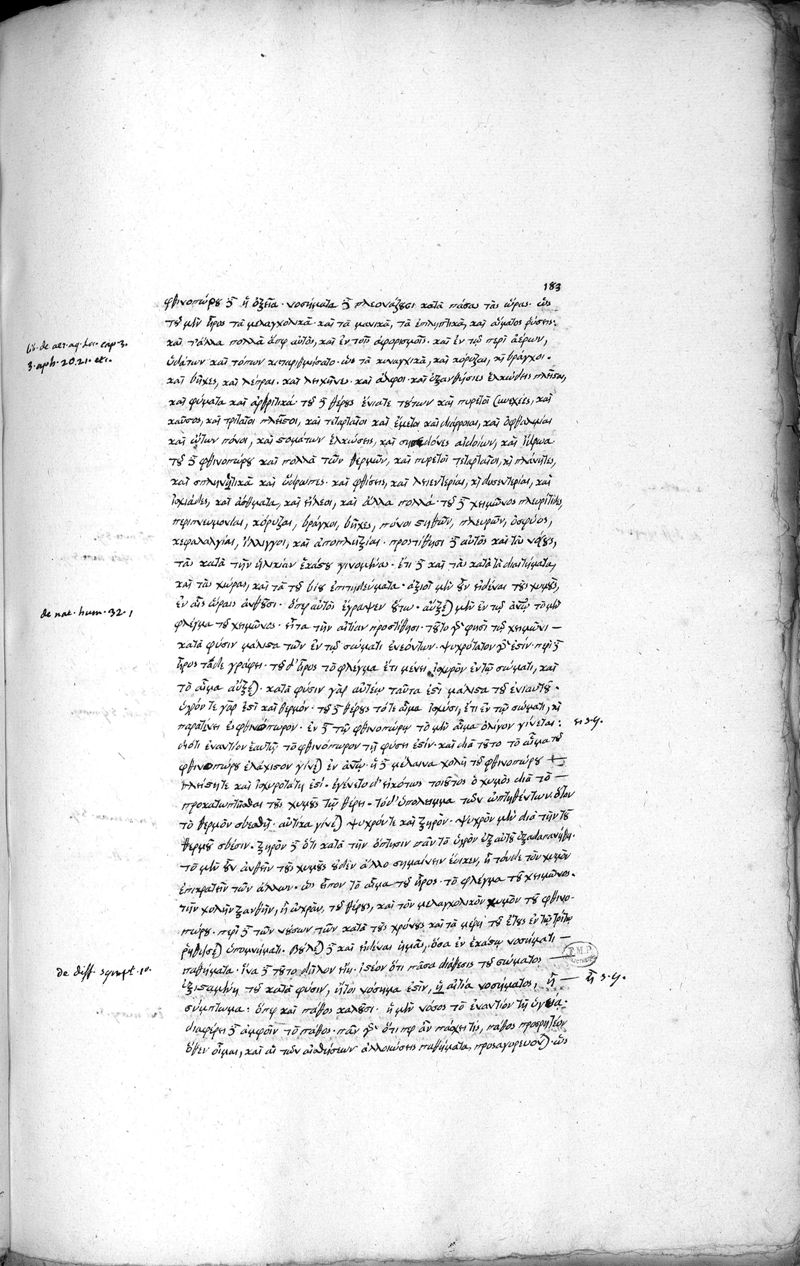 183
φθινοπώρου δὲ ἡ ὀξεῖα· νοσήματα δὲ πλεονάζουσι κατὰ πάσας τὰς ὥρας· ὡς
τοῦ μὲν ἦρος τὰ μελαγχολικὰ· καὶ τὰ μανικὰ, τὰ ἐπιληπτικὰ, καὶ αἵματος ῥύσιες·
lib. de aer. aq. loc. cap. 3.
3. aph. 20. 21. etc.
καὶ τἄλλα πολλὰ ἅπερ αὐτὸς, καὶ ἐν τοῖς ἀφορισμοῖς· καὶ ἐν τῷ περὶ ἀέρων,
ὑδάτων καὶ τόπων· ὡς τὰ κυναγχικὰ, καὶ κόρυζαι, καὶ βράγχοι·
καὶ βῆχες, καὶ λέπραι· καὶ λειχῆνες· καὶ ἀλφοὶ· καὶ ἐξανθήσιες ἑλκώδεις πλεῖσται,
καὶ φύματα καὶ ἀρθριτικὰ· τοῦ δὲ θέρους ἔνιαί τε τούτων καὶ πυρετοὶ συνεχέες, καί τε
καῦσος, καὶ τριταῖοι πλεῖστοι, καὶ τεταρταῖοι καὶ ἔμετοι καὶ διάρροιαι, καὶ ὀφθαλμίαι
καὶ ὤτων πόνοι, καὶ στομάτων ἑλκώσεις, καὶ σηπεδόνες αἰδοίων, καὶ ἵδρωα·
τοῦ δὲ φθινοπώρου καὶ πολλὰ τῶν θερινῶν, καὶ πυρετοὶ τεταρταῖοι, καὶ πλάνητες,
καὶ σπληνητικὰ καὶ ὕδρωπες· καὶ φθίσεις, καὶ λειεντερίαι, καὶ δυσεντερίαι, καὶ
ἰσχιάδες, καὶ ἄσθματα, καὶ εἴλεοι, καὶ ἄλλα πολλὰ· τοῦ δὲ χειμῶνος πλευρίτιδες,
περιπνευμονίαι, κόρυζαι, βράγχοι, βῆχες, πόνοι στηθῶν, πλευρῶν, ὀσφύος,
κεφαλαλγίαι, ἴλιγγοι, καὶ ἀποπληξίαι· προστίθησι δὲ αὐτὸς καὶ τὰς νούσους,
τὰς κατὰ τὴν ἡλικίαν ἑκάστου γινομένας· ἔτι δὲ καὶ τὰς κατὰ τὰ διαιτήματα,
καὶ τὰς χώρας, καὶ τὰ τοῦ βίου ἐπιτηδεύματα· ἀξιοῖ μὲν οὖν εἰδέναι τοὺς χυμοὺς,
de nat. hum. 32.
ἐν αἷς ὥραις ἀνθοῦσι· ὅπερ αὐτὸς ἔγραψεν οὕτω· αὔξεται μὲν ἐν τῷ ἀνθρώπῳ τὸ μὲν
φλέγμα τοῦ χειμῶνος· εἶτα τὴν αἰτίαν προστίθησι· τοῦτο γὰρ φησι τῷ χειμῶνι
κατὰ φύσιν μάλιστα τῶν ἐν τῷ σώματι ἐνεόντων· ψυχρότατον γάρ ἐστιν· περὶ δὲ
ἦρος τάδε γράφει· τοῦ δ' ἦρος τὸ φλέγμα ἔτι μένει ἰσχυρὸν ἐν τῷ σώματι, καὶ
τὸ αἷμα αὔξεται· κατὰ φύσιν γὰρ αὐτέῳ ταῦτά ἐστι μάλιστα τοῦ ἐνιαυτοῦ·
ὑγρόν τε γάρ ἐστι καὶ θερμόν· τοῦ δὲ θέρους τό τε αἷμα ἰσχύσι, ἔτι ἐν τῷ σώματι, καὶ
παρατείνει ἐς φθινόπωρον· ἐν δὲ τῷ φθινοπώρῳ τὸ μὲν αἷμα ὀλίγον γίνεται·
διότι ἐναντίον ἑαυτῷ τὸ φθινόπωρον τῇ φύσει ἐστίν· καὶ διὰ τοῦτο τὸ αἷμα τοῦ
φθινοπώρου ἐλάχιστον γίνεται ἐν ἀνθρώπῳ· ἡ δὲ μέλαινα χολὴ τοῦ φθινοπώρου
πλείστη τε καὶ ἰσχυροτάτη ἐστί· ἐγένετο δ' εἰκότως τοιοῦτος ὁ χυμὸς διὰ τὸ
προκατωπτῆσθαι τοὺς χυμοὺς τῷ θέρει· τὸ δ' ὑπόλειμμα τῶν ὠπτηθέντων ὅταν
τὸ θερμὸν σβεσθῇ· αὐτίκα γίνεται ψυχρόν τε καὶ ξηρὸν· ψυχρὸν μὲν διὰ τὴν τοῦ
θερμοῦ σβέσιν· ξηρὸν δὲ ὅτι κατὰ τὴν ὄπτησιν πᾶν τὸ ὑγρὸν ἐξ αὐτοῦ ἐξεδαπανήθη·
τὸ μὲν οὖν ἀνθεῖν τοὺς χυμοὺς οὐδὲν ἄλλο σημαίνειν ἔοικεν, ἢ τόνδε τὸν χυμὸν
ἐπικρατεῖν τῶν ἄλλων· ὡς εἶπον τὸ αἷμα τοῦ ἦρος· τὸ φλέγμα τοῦ χειμῶνος·
τὴν χολὴν ξανθὴν, ἢ ὠχρὰν, τοῦ θέρους, καὶ τὸν μελαγχολικὸν χυμὸν τοῦ φθινο-
πώρου· περὶ δὲ τῶν νόσων τῶν κατὰ τοὺς χρόνους καὶ τὰ μέρη τοῦ ἔτους ἐν τῷ τρίτῳ
ῥηθήσεται ὑπομνήματι· βούλεται δὲ καὶ εἰδέναι ἡμᾶς, ὅσα ἐν ἑκάστῳ νοσήματι
de diff. sympt. 1º.
παθήματα· ἵνα δὲ τοῦτο δῆλον εἴη· ἰστέον ὅτι πᾶσα διάθεσις τοῦ σώματος
ἐξισταμένη τοῦ κατὰ φύσιν, ἤτοι νόσημά ἐστιν, ἢ αἰτία νοσήματος, ἢ
σύμπτωμα· ὅπερ καὶ πάθος καλοῦσι· ἡ μὲν νόσος τὸ ἐναντίον τῇ ὑγιείᾳ·
διαφέρει δὲ ἀμφοῖν τὸ πάθος· πᾶν γὰρ ὅτι περ ἂν πάσχῃ τις, πάθος προσρητέον
ὅθεν οἶμαι, καὶ αἱ τῶν αἰσθήσεων ἀλλοιώσεις παθήματα, προσαγορεύονται· ὡς